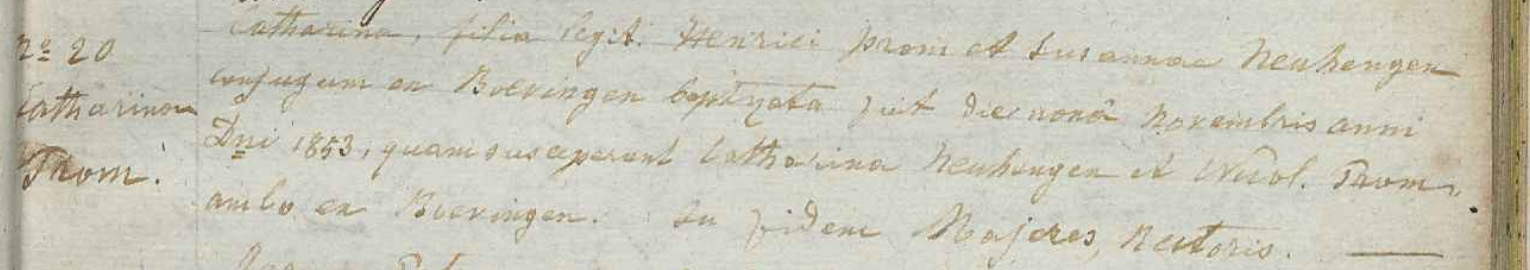 nº 20
Catharina
Prom.
Catharina, filia legit. Henrici Prom et Susannae Neuhengen
conjugum ex Boevingen baptizata fuit die nonâ Novembris anni
Dni 1853, quam susceperunt Catharina Neuhengen et Nicol. Prom,
ambo ex Boevingen. In fidem Majeres, Rectoris.